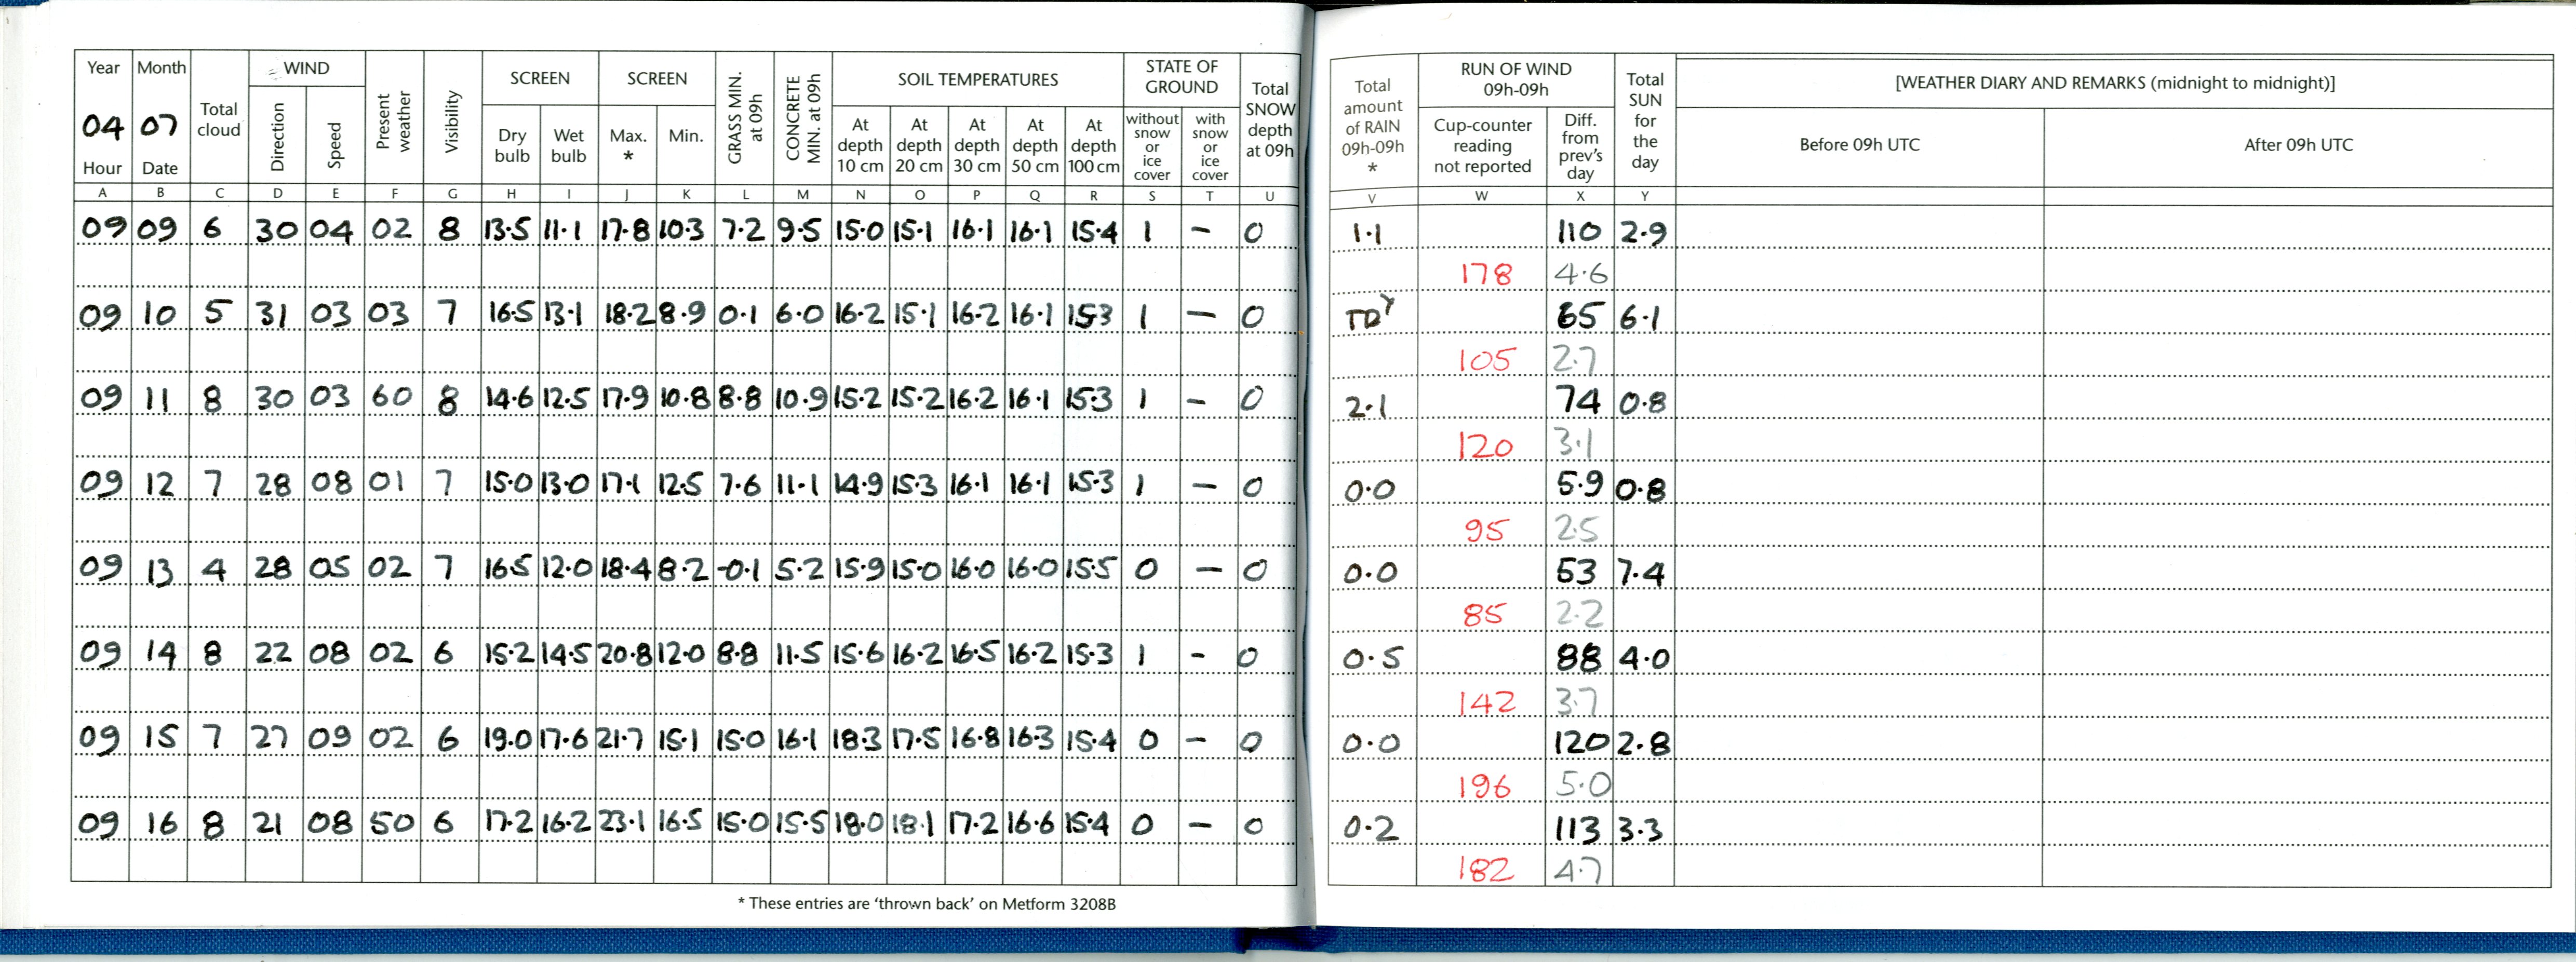 Year Month Total cloud WIND Present weather Visibility SCREEN SCREEN GRASS MIN. at 09h CONCRETE MIN. at 09h SOIL TEMPERATURES STATE OF GROUND Total SNOW depth at 09h Total amount of RAIN 09h-09h * RUN OF WIND 09h-09h Total SUN for the day [WEATHER DIARY AND REMARKS (midnight to midnight)]
04 07 Direction Speed Dry bulb Wet bulb Max. * Min. At depth 10 cm At depth 20 cm At depth 30 cm At depth 50 cm At depth 100 cm without snow or ice cover with snow or ice cover Cup-counter reading not reported Diff. from prev's day Before 09h UTC After 09h UTC
Hour Date
A B C D E F G H I J K L M N O P Q R S T U V W X Y
09 09 6 30 04 02 8 13.5 11.1 17.8 10.3 7.2 9.5 15.0 15.1 16.1 16.1 15.4 1 – 0 1.1 110 2.9
178 4.6
09 10 5 31 03 03 7 16.5 13.1 18.2 8.9 0.1 6.0 16.2 15.1 16.2 16.1 15.3 1 – 0 65 6.1
105 2.7
09 11 8 30 03 60 8 14.6 12.5 17.9 10.8 8.8 10.9 15.2 15.2 16.2 16.1 15.3 1 – 0 2.1 74 0.8
120 3.1
09 12 7 28 08 01 7 15.0 13.0 17.1 12.5 7.6 11.1 14.9 15.3 16.1 16.1 15.3 1 – 0 0.0 5.9 0.8
95 2.5
09 13 4 28 05 02 7 16.5 12.0 18.4 8.2 -0.1 5.2 15.9 15.0 16.0 16.0 15.5 0 – 0 0.0 53 7.4
85 2.2
09 14 8 22 08 02 6 15.2 14.5 20.8 12.0 8.8 11.5 15.6 16.2 16.5 16.2 15.3 1 – 0 0.5 88 4.0
142 3.7
09 15 7 27 09 02 6 19.0 17.6 21.7 15.1 15.0 16.1 18.3 17.5 16.8 16.3 15.4 0 – 0 0.0 120 2.8
196 5.0
09 16 8 21 08 50 6 17.2 16.2 23.1 16.5 15.0 15.5 18.0 18.1 17.2 16.6 15.4 0 – 0 0.2 113 3.3
182 4.7
* These entries are ‘thrown back’ on Metform 3208B